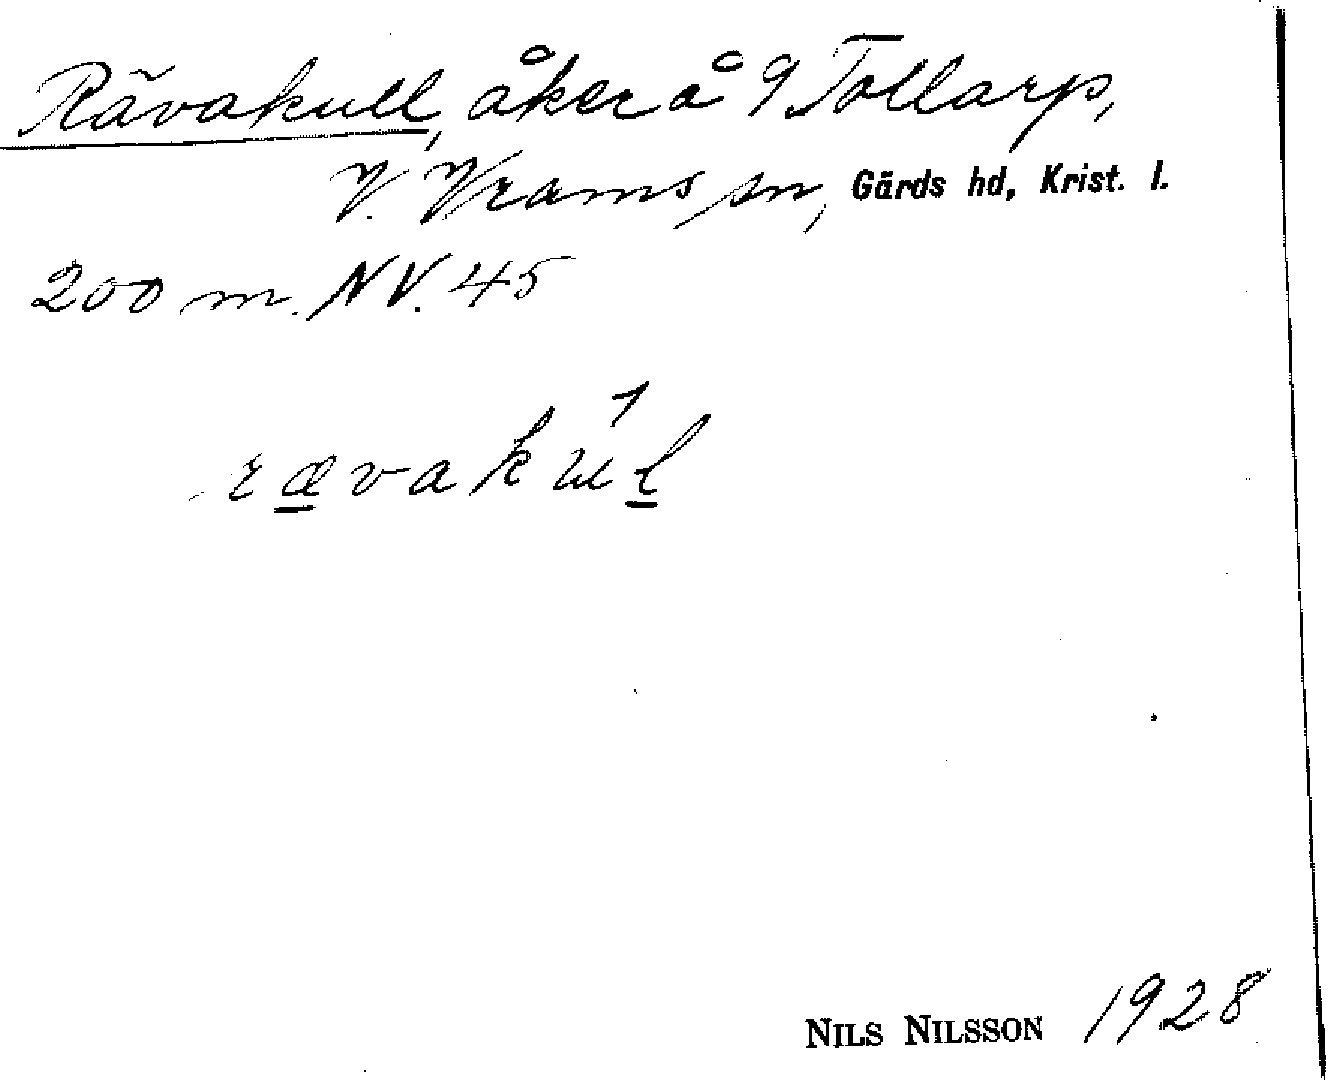 Rävakull, åker å 9 Tollarp,
V. Vrams sn, Gärds hd, Krist. l.
200 m. NV. 45
rævakul
NILS NILSSON 1928